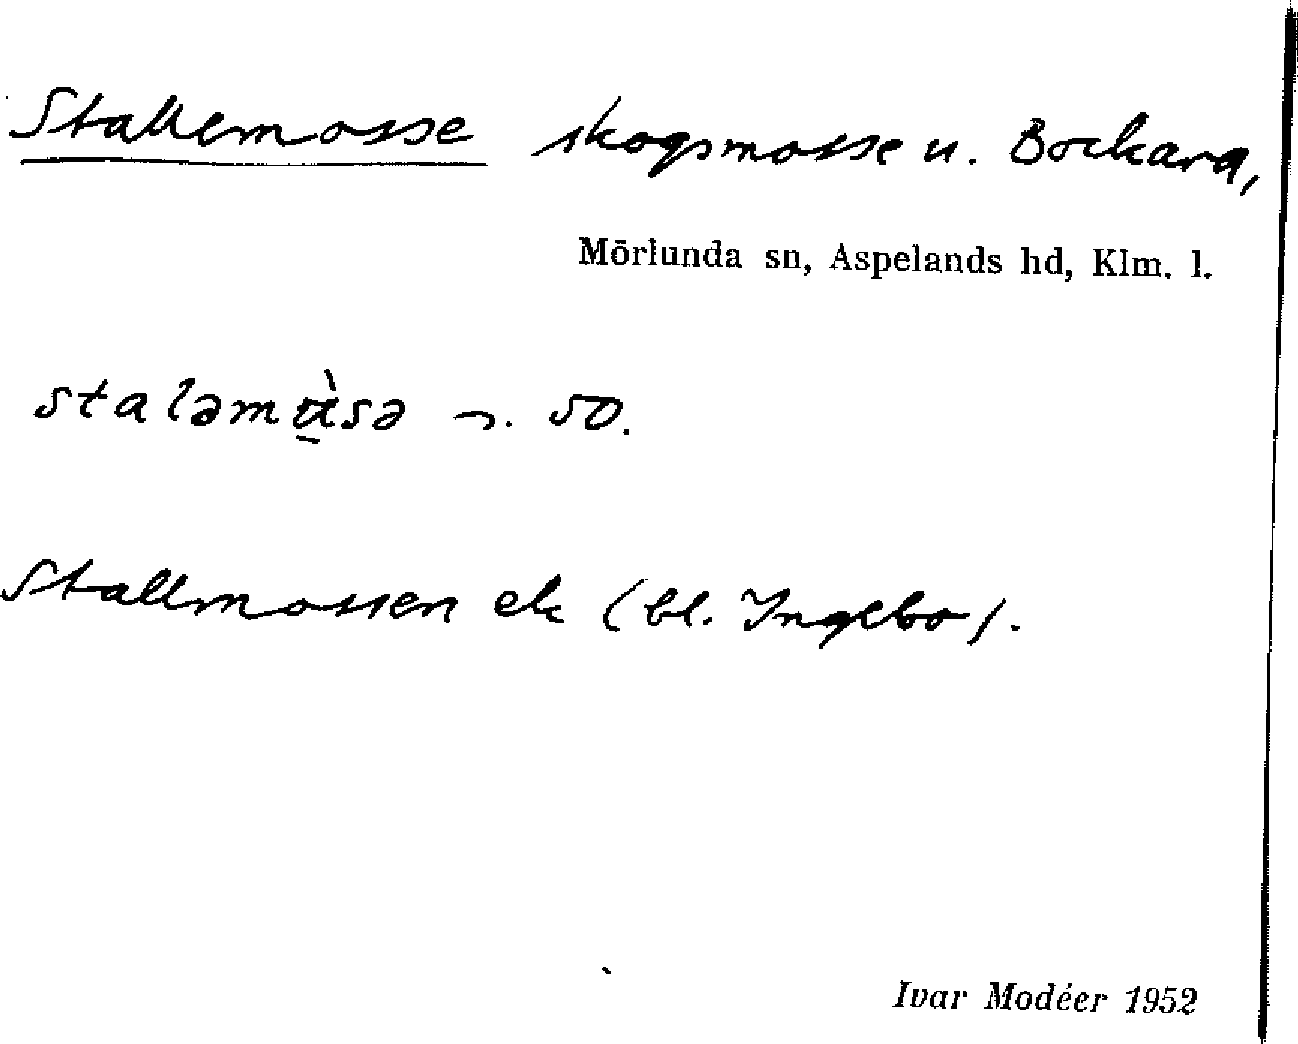 Stallemosse skogsmosse u. Bockara,
Mörlunda sn, Aspelands hd, Klm. l.
staləmɑ̀sə 50.
Stallmossen ek (bl. Ingebo).
Ivar Modéer 1952